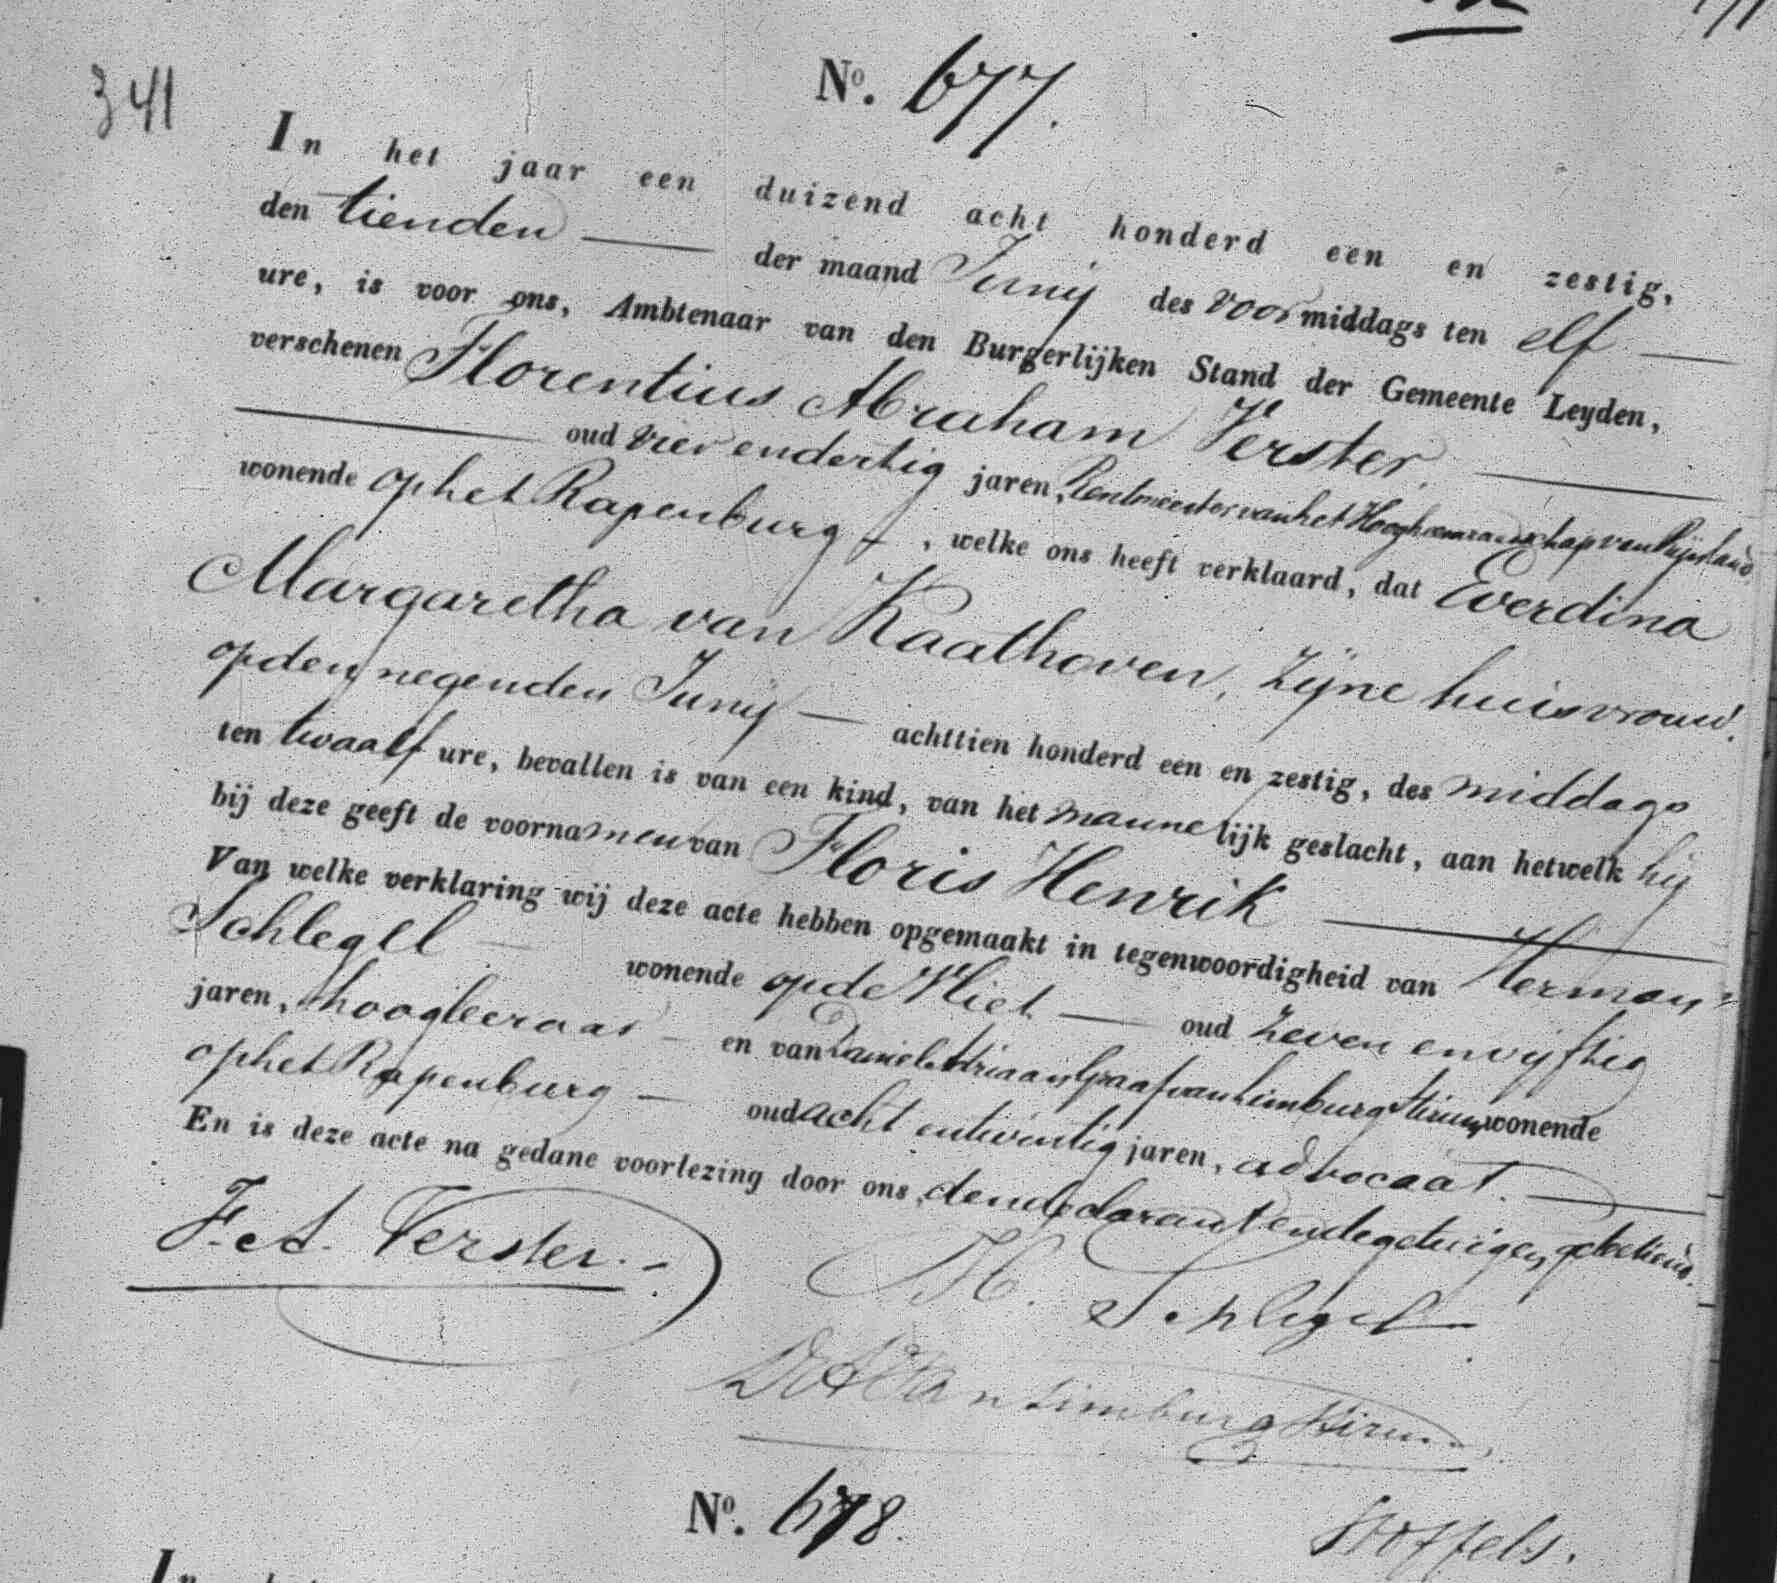 341
No. 677.
In het jaar een duizend acht honderd een en zestig,
den tienden der maand Junij des voormiddags ten elf
ure, is voor ons, Ambtenaar van den Burgerlijken Stand der Gemeente Leyden,
verschenen Florentius Abraham Verster.
oud vier en dertig jaren, Rentmeester van het Hoogheemraadschap van Rijnland
wonende op het Rapenburg, welke ons heeft verklaard, dat Everdina
Margaretha van Kaathoven, zijne huisvrouw.
op den negenden Junij achttien honderd een en zestig, des middags
ten twaalf ure, bevallen is van een kind, van het mannelijk geslacht, aan hetwelk hij
bij deze geeft de voornamen van Floris Henrik
Van welke verklaring wij deze acte hebben opgemaakt in tegenwoordigheid van Herman
Schlegel wonende op de Vliet oud zeven en vijftig
jaren, hoogleeraar en van Daniel Adriaan Graaf van Limburg Stirum, wonende
op het Rapenburg oud acht en twintig jaren, advocaat.
En is deze acte na gedane voorlezing door ons, den declarant en de getuigen geteekend.
F. A. Verster.
H. Schlegel
van Limburg Stirum
Stoffels.
No. 678.
In het